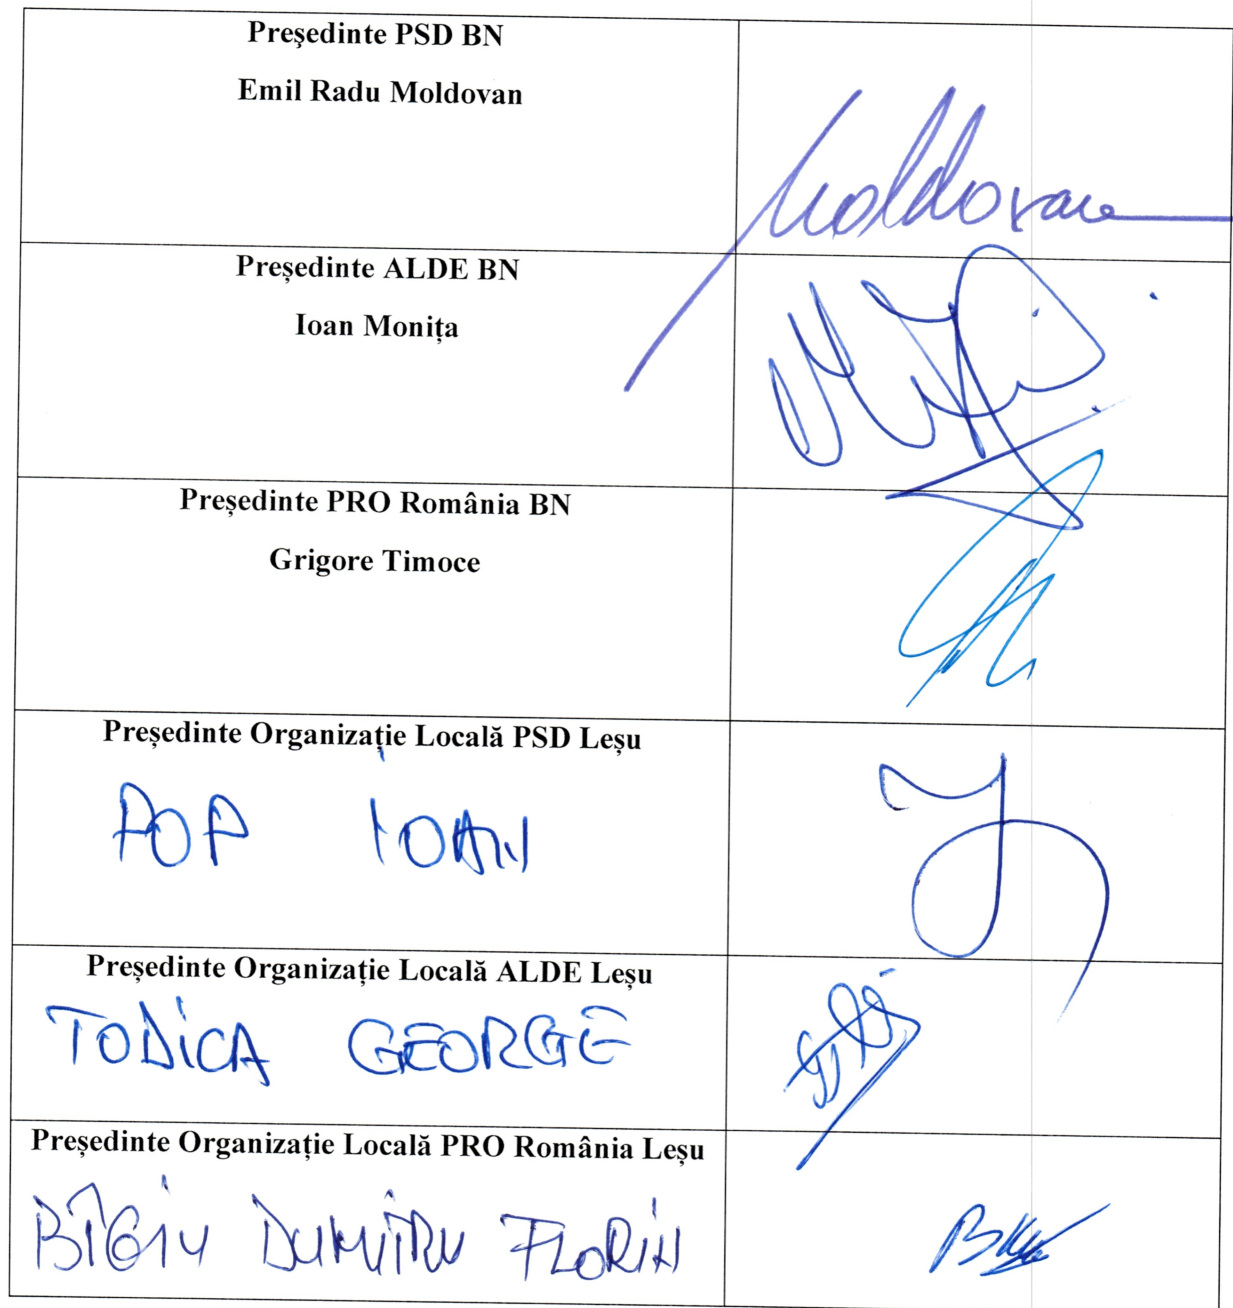 Preşedinte PSD BN
Emil Radu Moldovan
Moldovan
Președinte ALDE BN
Ioan Monița
Președinte PRO România BN
Grigore Timoce
Președinte Organizație Locală PSD Leșu
POP IOAN
Președinte Organizație Locală ALDE Leșu
TODICA GEORGE
Președinte Organizație Locală PRO România Leșu
BÎGIU DUMITRU FLORIN